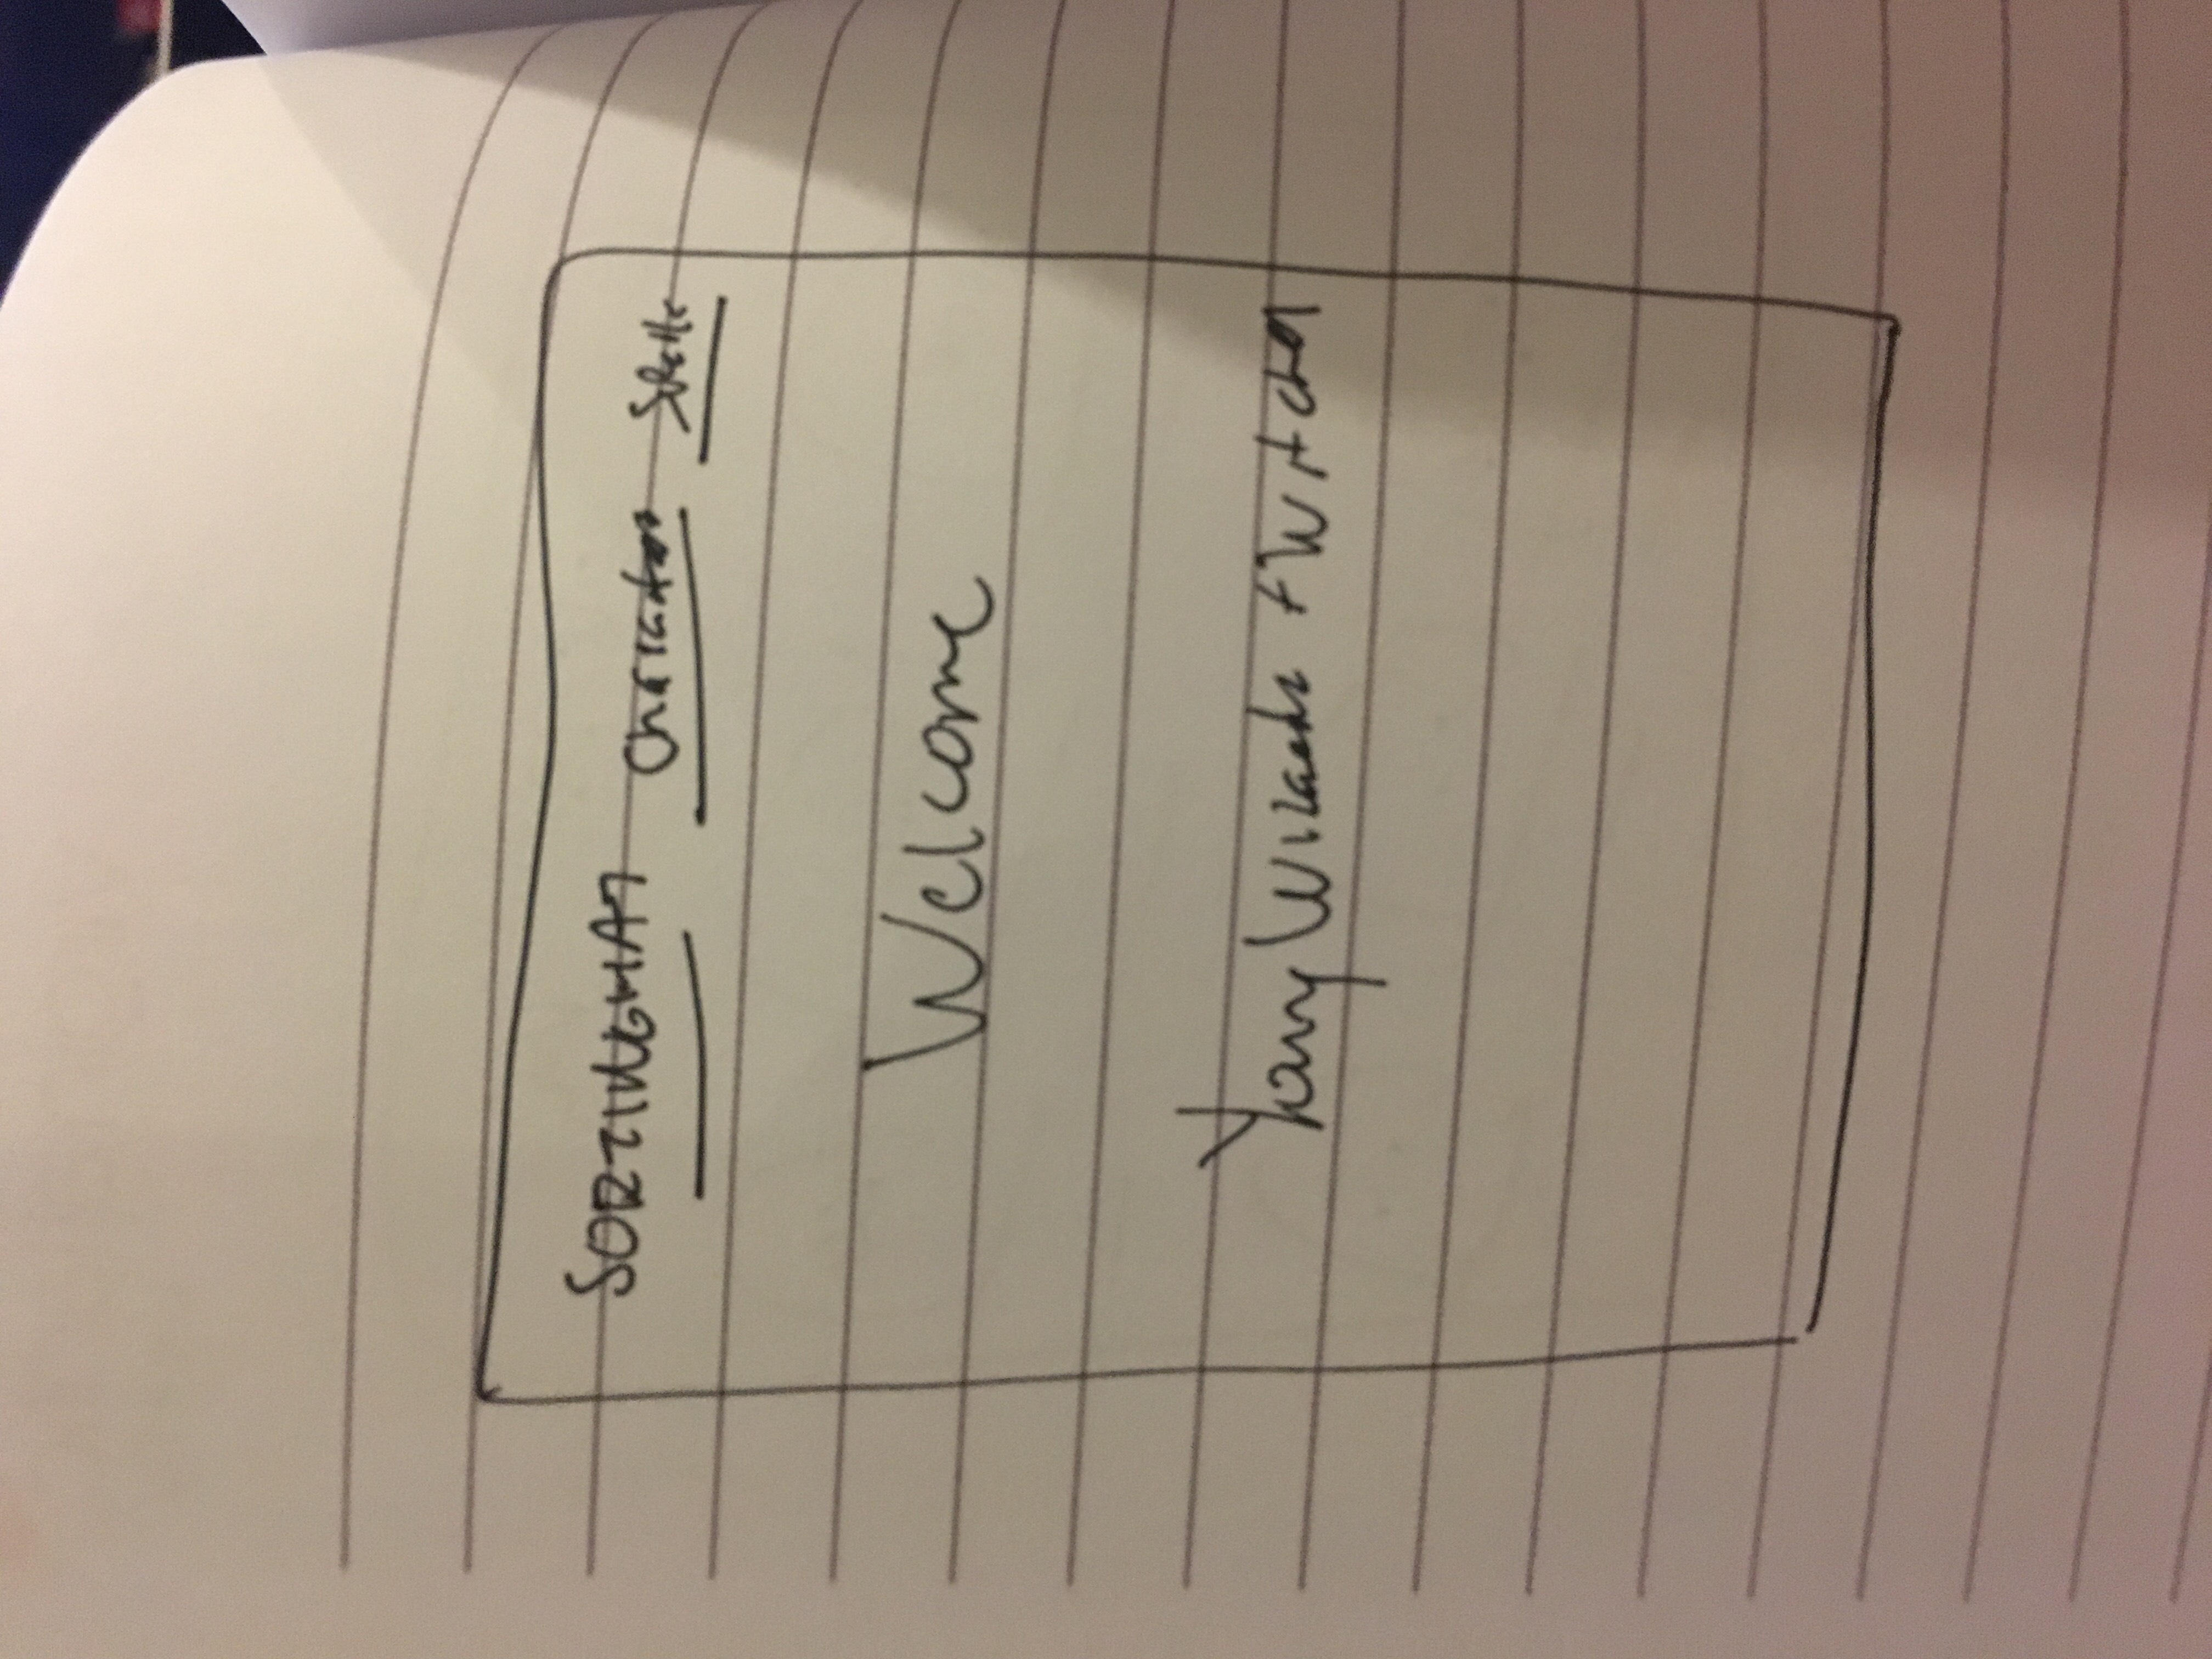 SORTINGHAT Characters Spells
Welcome
Young Wizards + Witches